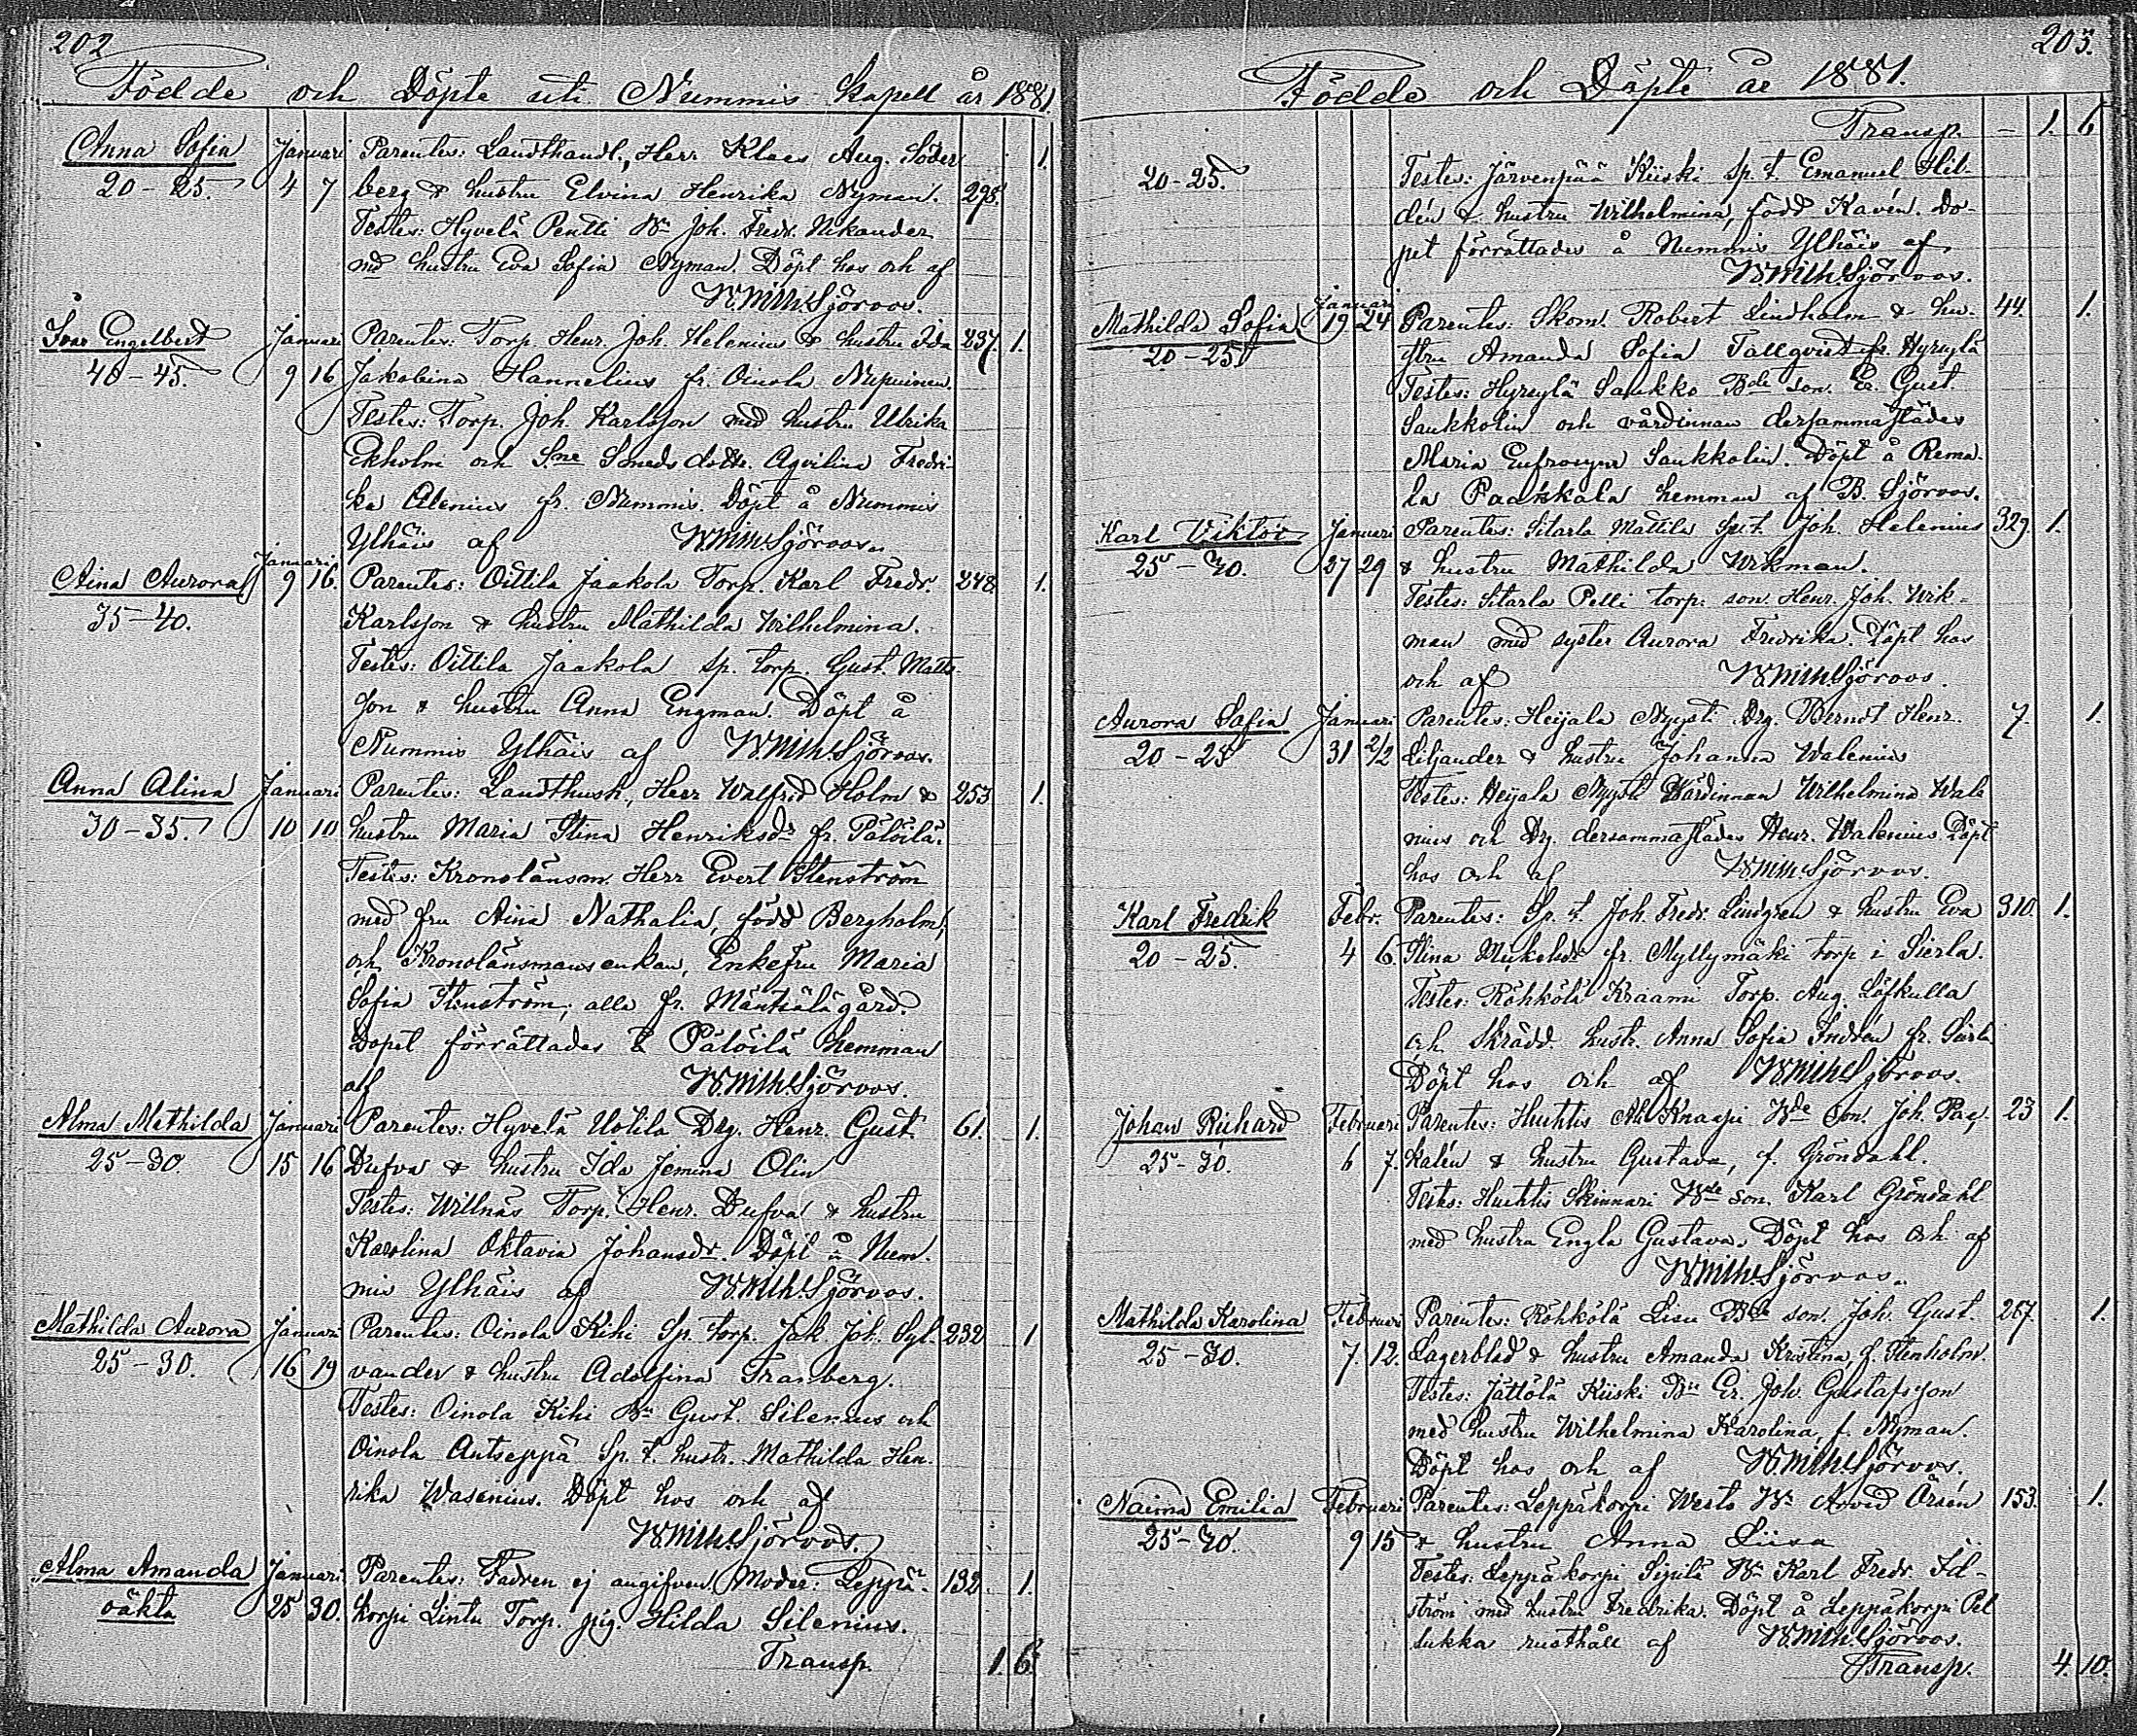 202
Födde och Döpte uti Nummis Kapell år 1881.
Anna Sofia Januari Parentes: Landthandl., Herr Klaes Aug. Söder- 1.
20-25. 4 7 berg & hustru Elvina Henrika Nyman. 298.
Testes: Hyvelä Pentti Bn Joh. Fredr. Nikander
md hustru Eva Sofia Nyman. Döpt hos och af
Sjöroos.
Ivar Engelbert Januari Parentes: Torp. Henr. Joh. Helenius & hustru Ida 237. 1.
40-45. 9 16 Jakobina Hannelius fr. Oinola Nypuinen.
Testes: Torp. Joh. Karlsson med hustru Ulrika
Ekholm och Smeds dottr. Aqvilina Fredri-
ka Alenius fr. Nummis. Döpt å Nummis
Ylhäis af Sjöroos.
Aina Aurora Januari 9 16. Parentes: Oittila Jaakola Torp. Karl Fredr. 248. 1.
35-40. Karlsson & hustru Mathilda Wilhelmina.
Testes: Oittila Jaakola Sp. torp. Gust. Matts-
son & hustru Anna Engman. Döpt å
Nummis Ylhäis af Sjöroos.
Anna Alina Januari Parentes: Landthush., Herr Walfrid Holm & 253 1.
30-35. 10 10 hustru Maria Stina Henriksdr fr. Pälöilä.
Testes: Kronolänsm. Herr Evert Stenström
med fru Aina Nathalia, född Bergholm,
och Kronolänsmansenkan, Enkefru Maria
Sofia Stenström; alla fr. Mäntsälä gård.
Dopet förrättades å Pälöilä hemman
af Sjöroos.
Alma Mathilda Januari Parentes: Hyvelä Uotila Drg. Henr. Gust. 61. 1.
25-30. 15 16 Dufva & hustru Ida Jemina Olin
Testes: Willnäs Torp. Henr. Dufva & hustru
Karolina Oktavia Johansdr. Döpt å Num-
mis Ylhäis af Sjöroos.
Mathilda Aurora Januari Parentes: Oinola Kihi Sp. torp. Jak. Joh. Syl- 232 1
25-30. 16 19 vander & hustru Adolfina Tranberg.
Testes: Oinola Kihi Bn Gust. Silenius och
Oinola Antseppä Sp. t. hustr. Mathilda Hen-
rika Wasenius. Döpt hos och af
Sjöroos.
Alma Amanda Januari Parentes: Fadren ej angifven. Moder: Leppä- 132. 1.
oäkta 25 30. korpi Lintu Torp. pig. Hilda Silenius.
Transp. 1. 6.
203.
Födde och Döpte år 1881.
Transp. – 1. 6
20-25. Testes: Järvenpää Kiiski Sp. t. Emanuel Hil-
dén & hustru Wilhelmina, född Kavén. Do-
pet förrättades å Nummis Ylhäis af
Sjöroos.
Mathilda Sofia Januari 19 24 Parentes: Skom. Robert Lindholm & hu- 44. 1.
20-25 stru Amanda Sofia Tallqvist fr. Hyrsylä
Testes: Hyrsylä Saukko Bde son. Er. Gust.
Saukkolin och värdinnan dersammastädes
Maria Eufrosyne Saukkolin. Döpt å Rema-
la Paakkala hemman af B. Sjöroos.
Karl Viktor Januari Parentes: Sitarla Mattila Sp. t. Joh. Helenius 329. 1.
25-30. 27 29 & hustru Mathilda Wikman.
Testes: Sitarla Pelli torp. son. Henr. Joh. Wik-
man med syster Aurora Fredrika. Döpt hos
och af Sjöroos.
Aurora Sofia Januari Parentes: Heijala Nysti Drg. Berndt Henr. 7. 1.
20-25 31 2/2 Liljander & hustru Johanna Walenius
Testes: Heijala Nysti Värdinnan Wilhelmina Wale-
nius och Drg. dersammastädes Henr. Walenius. Döpt
hos och af Sjöroos.
Karl Fredrik Febr. Parentes: Sp. t. Joh. Fredr. Lindgren & hustru Eva 310. 1.
20-25. 4 6. Stina Mickelsdr fr. Myllymäki torp i Sierla.
Testes: Röhkölä Kraami Torp. Aug. Löfkulla
och Skrädd. hustr. Anna Sofia Indén fr. Sierla.
Döpt hos och af Sjöroos.
Johan Richard Februari Parentes: Huhtis Ali Knaapi Bde son. Joh. Paq- 23 1.
25-30. 6 7. kalén & hustru Gustava, f. Gröndahl.
Testes: Huhtis Skinnari Bde son. Karl Gröndahl
med hustru Engla Gustava. Döpt hos och af
Sjöroos.
Mathilda Karolina Februari Parentes: Röhkölä Lisu Bde son. Joh. Gust. 267. 1.
25-30. 7. 12. Lagerblad & hustru Amanda Kristina, f. Stenholm.
Testes: Jättölä Kiiski Bn Er. Joh. Gustafsson
med hustru Wilhelmina Karolina, f. Nyman.
Döpt hos och af Sjöroos.
Naima Emilia Februari Parentes: Leppäkorpi Westo Bn Arvid Örsén 153. 1.
25-30. 9 15 & hustru Anna Liisa
Testes: Leppäkorpi Sipilä Bn Karl Fredr. Id-
ström med hustru Fredrika. Döpt å Leppäkorpi Pel-
lukka rusthåll af Sjöroos.
Transp. 4. 10.